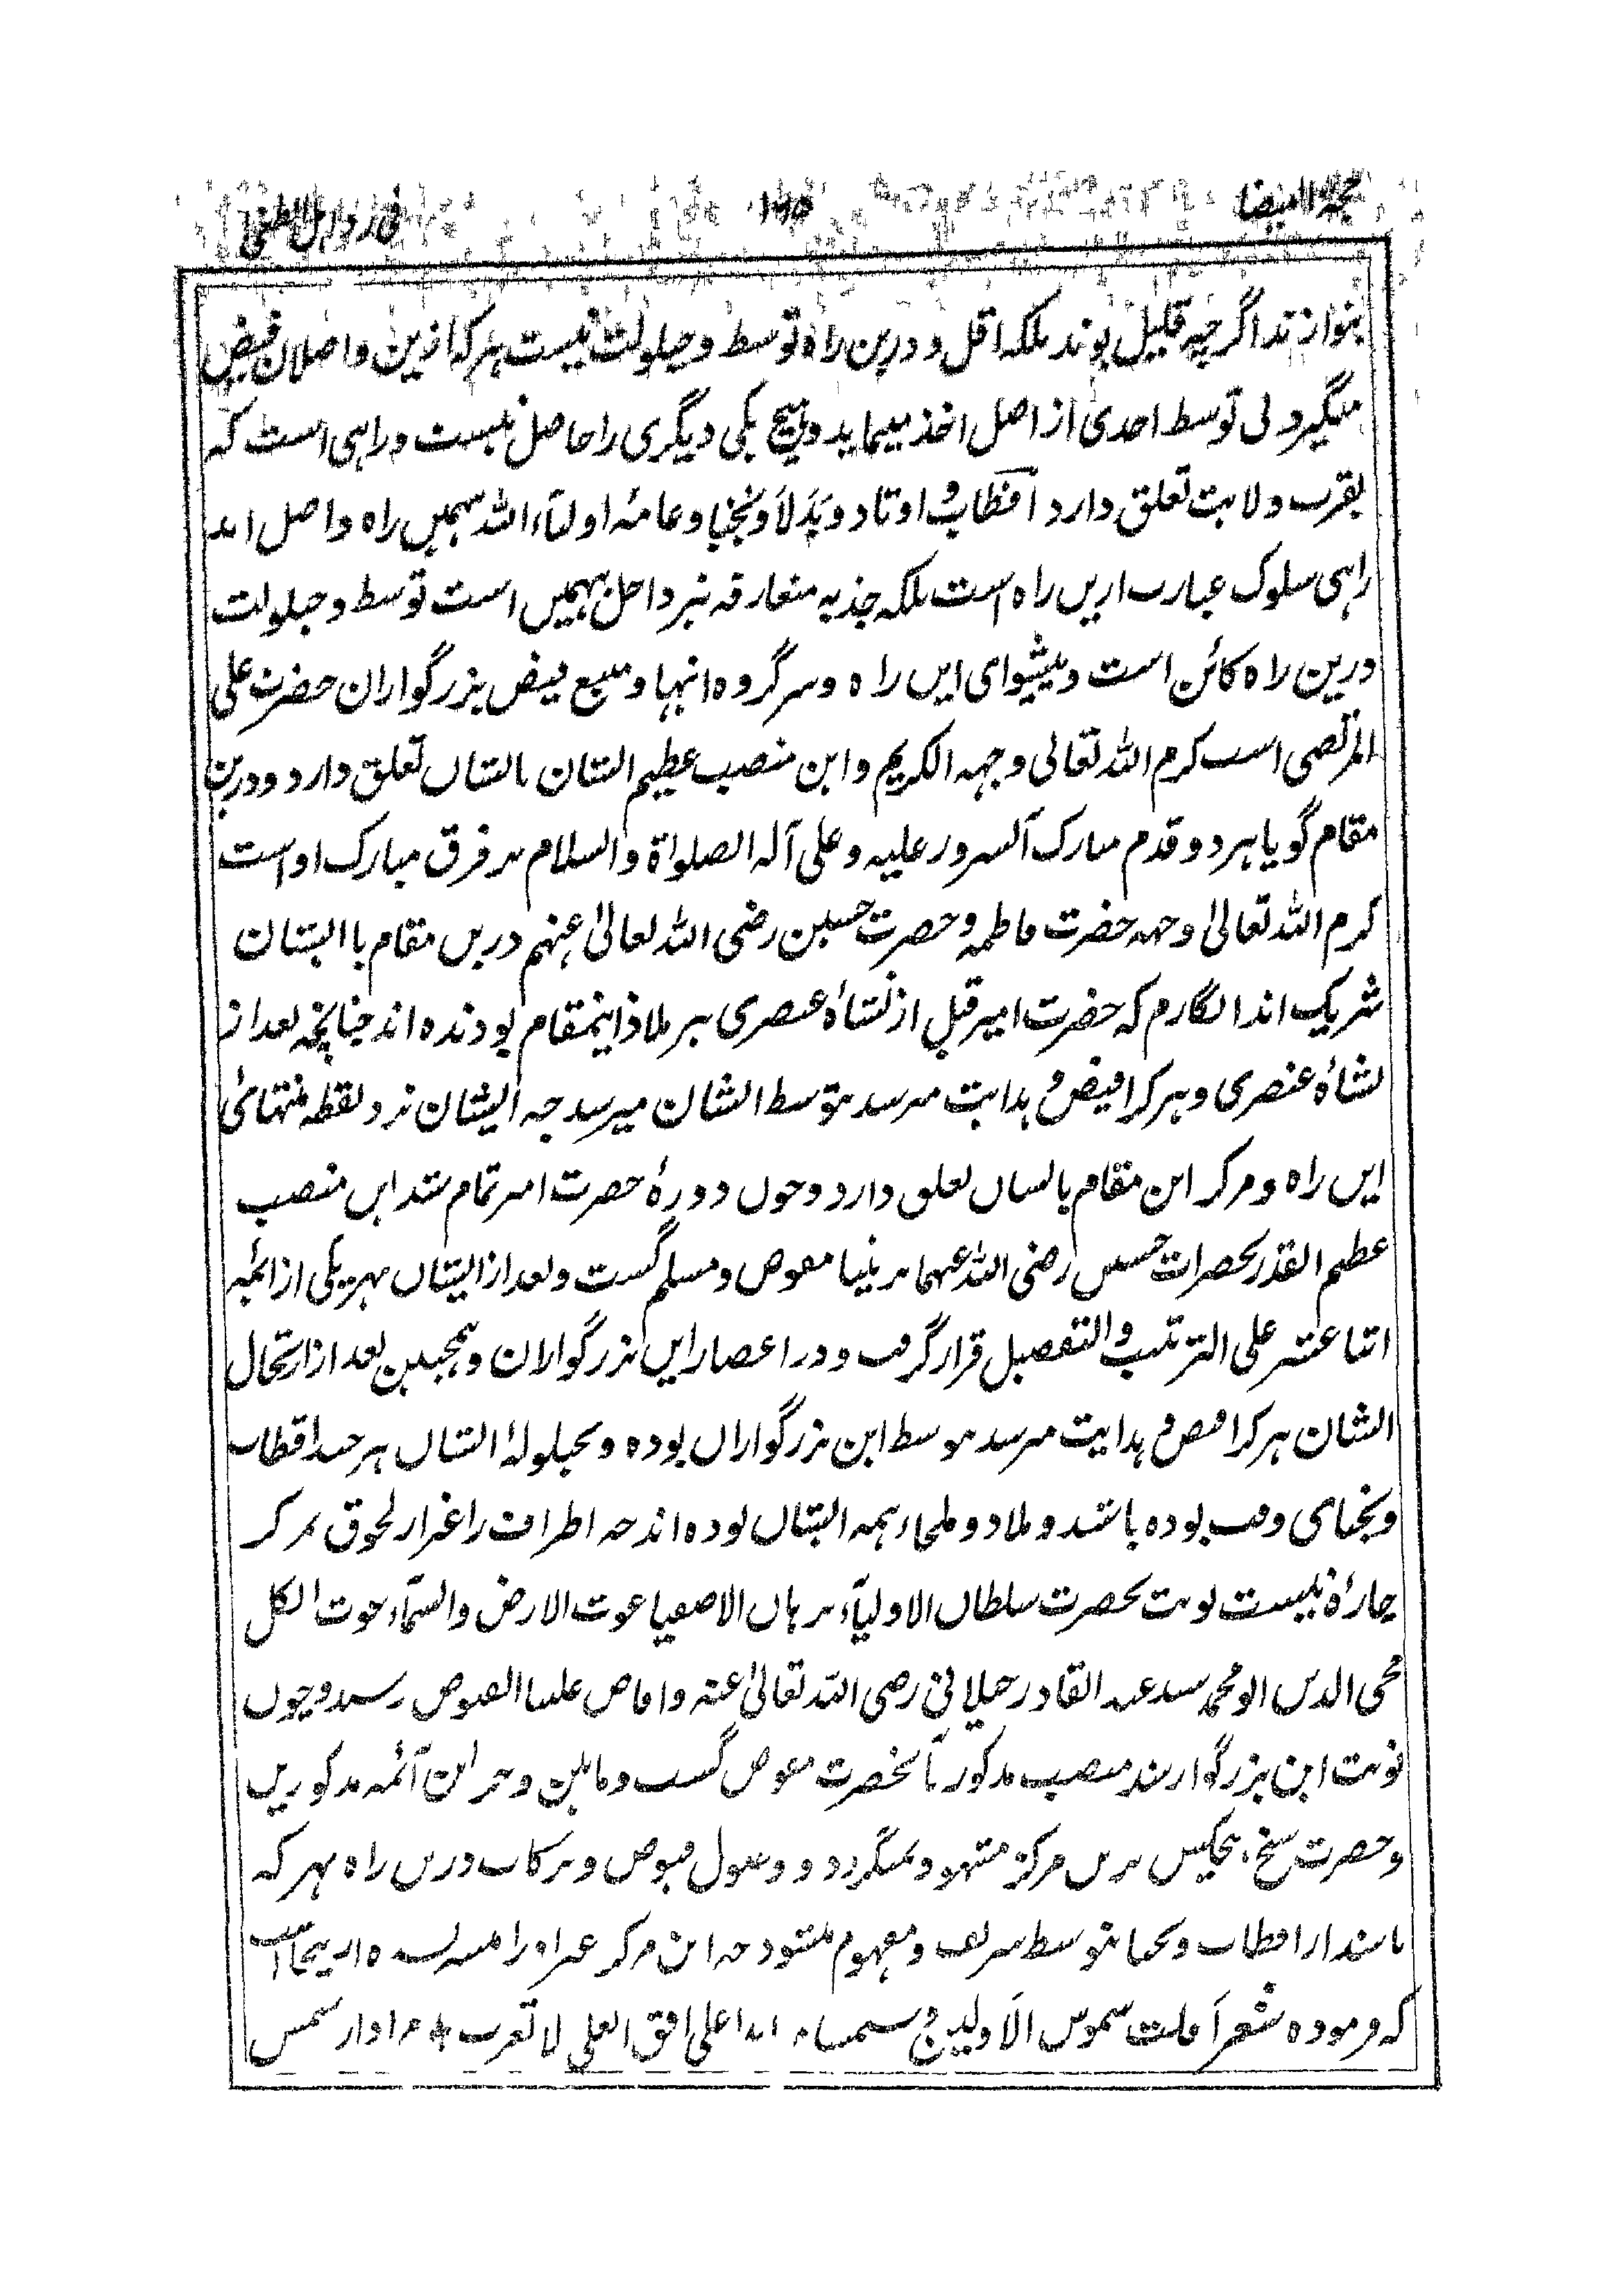 حجة البیضا ۱۶۵ فی رد اهل الطغی
بنوازند اگرچه قلیل بوند بلکه اقل و درین راه توسط و حیلولت نیست هر که ازین واصلان فیض
میگیرد بی توسط احدی از اصل اخذ مینماید و هیچ یکی دیگری را حاصل نیست و راهی است که
بقرب ولایت تعلق دارد اقطاب و اوتاد و بدلا و نجبا و عامهٔ اولیآء الله بهمین راه واصل اند
راهی سلوک عبارت ازین راه است بلکه جذبه متعارفه نیز داخل بهمین است توسط و حیلولت
درین راه کائن است و پیشوای این راه و سرگروه اینها و منبع فیض بزرگواران حضرت علی
المرتضی است کرم الله تعالی وجهه الکریم و این منصب عظیم الشان بالشان تعلق دارد و درین
مقام گویا هر دو قدم مبارک آنسرور علیه و علی آله الصلواة والسلام بر فرق مبارک او است
کرم الله تعالیٰ وجهه حضرت فاطمه و حضرت حسنین رضی الله تعالیٰ عنهم درین مقام با ایشان
شریک اند انگارم که حضرت امیر قبل از نشاهٔ عنصری بر ملاذ اینمقام بودنده اند چنانچه بعد از
نشاهٔ عنصری و هر کرا فیض و هدایت میرسد بتوسط ایشان میرسد چه ایشان نزد نقطه منتهائی
این راه و مرکز این مقام بایشان تعلق دارد و چون دورهٔ حضرت امیر تمام شد این منصب
عظیم القدر بحضرات حسنین رضی الله عنهما مفوض و مسلم گشت و بعد از ایشان بهر یکی از ائمه
اثنا عشر علی الترتیب والتفصیل قرار گرفت و در اعصار این بزرگواران و همچنین بعد از ارتحال
ایشان هر کرا فیض و هدایت میرسد بتوسط این بزرگواران بوده و بحیلولهٔ ایشان هر چند اقطاب
و نجبای وقت بوده باشند و ملاذ و ملجاء همه ایشان بوده اند چه اطراف را غیر از لحوق بمرکز
چارهٔ نیست نوبت بحضرت سلطان الاولیآء برهان الاصفیا غوث الارض والسمآء غوث الکل
محی الدین ابو محمد سید عبد القادر جیلانی رضی الله تعالیٰ عنه و افاض علینا الفیوض رسید و چون
نوبت این بزرگوار شد منصب مذکور بآنحضرت مفوض گشت و مابین آئمه مذکورین
و حضرت شیخ هیچکس برین مرکز مشهود نمیگردد و وصول فیوض و برکات درین راه بهر که
باشد از اقطاب و نجبا بتوسط شریف و مفهوم میشود چه این مرکز غیر او را میسر نشده ازینجاست
که فرموده شعر افلت شموس الاولین و شمسنا ابدا علی افق العلی لا تغرب مراد از شمس